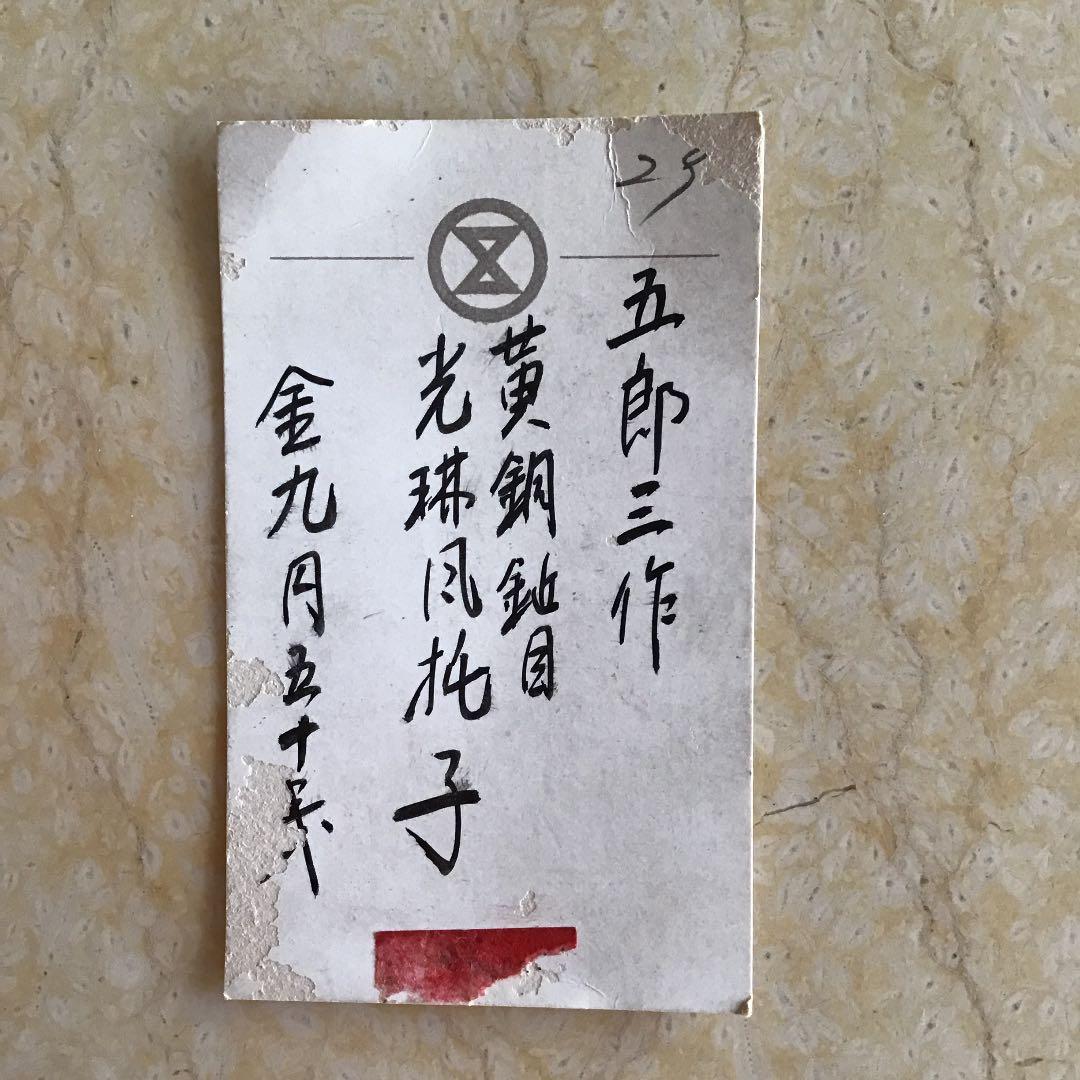 25
五郎三作
黃銅鎚目
光琳風托子
金九円五十銭